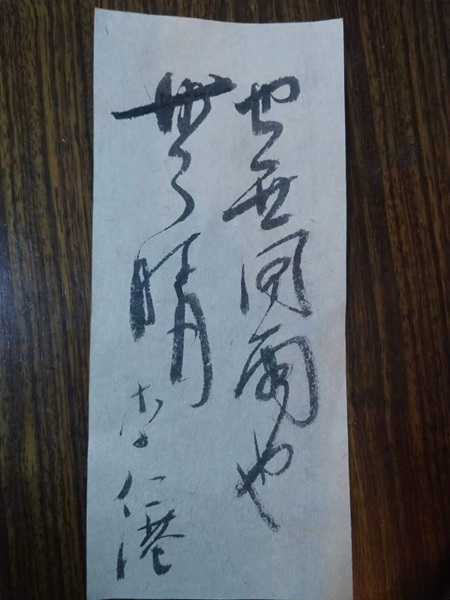 也無風雨也
無晴
李仁港